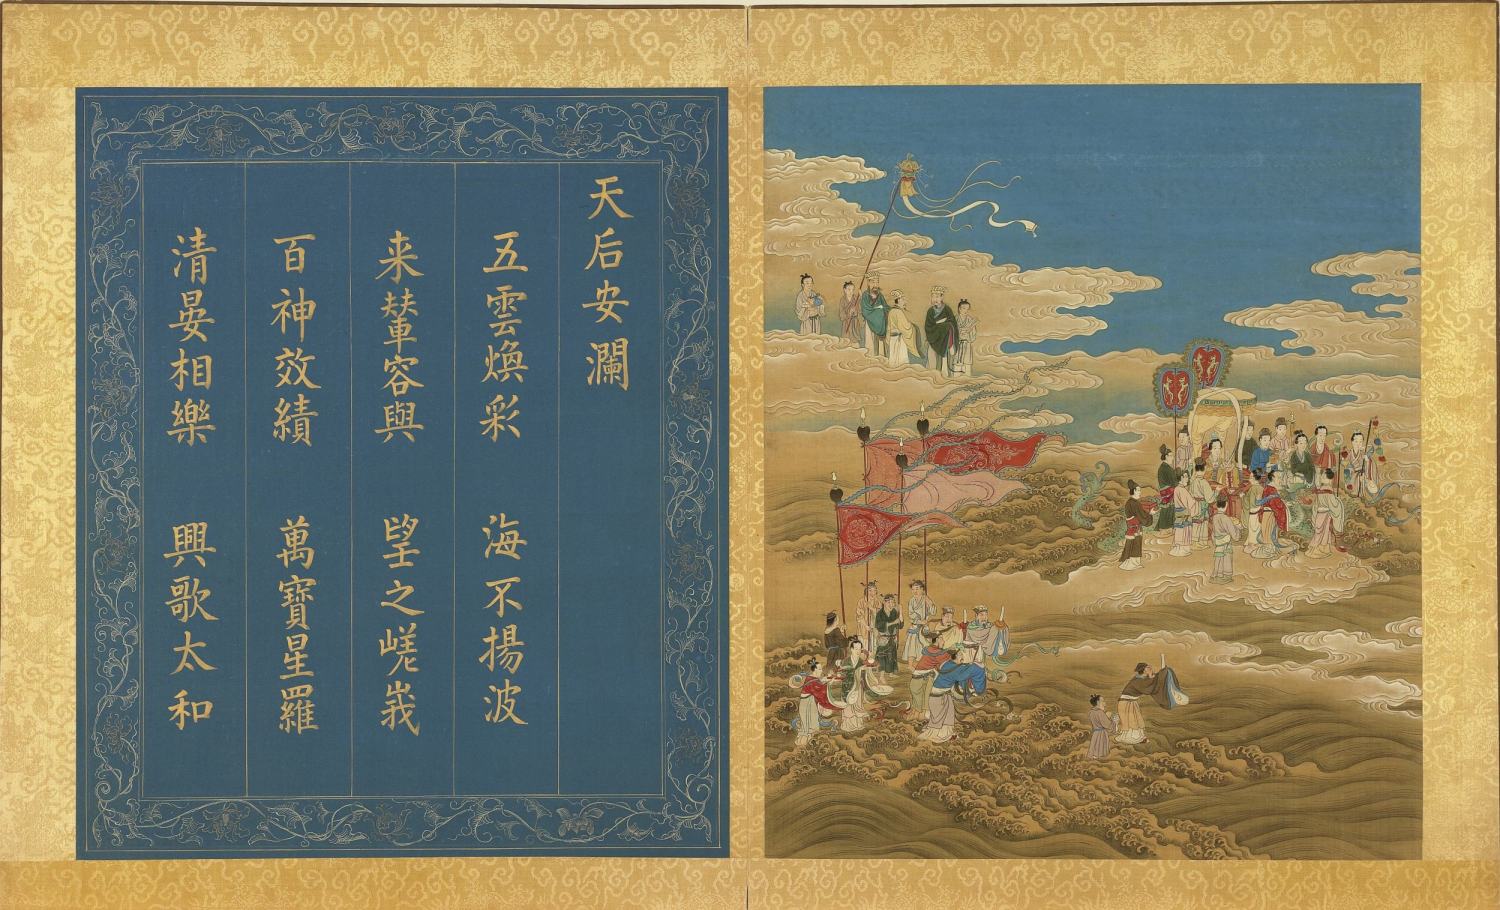 天后安瀾
五雲煥彩 海不揚波
来輦容與 望之嵯峩
百神效績 萬寶星羅
清晏相樂 興歌太和